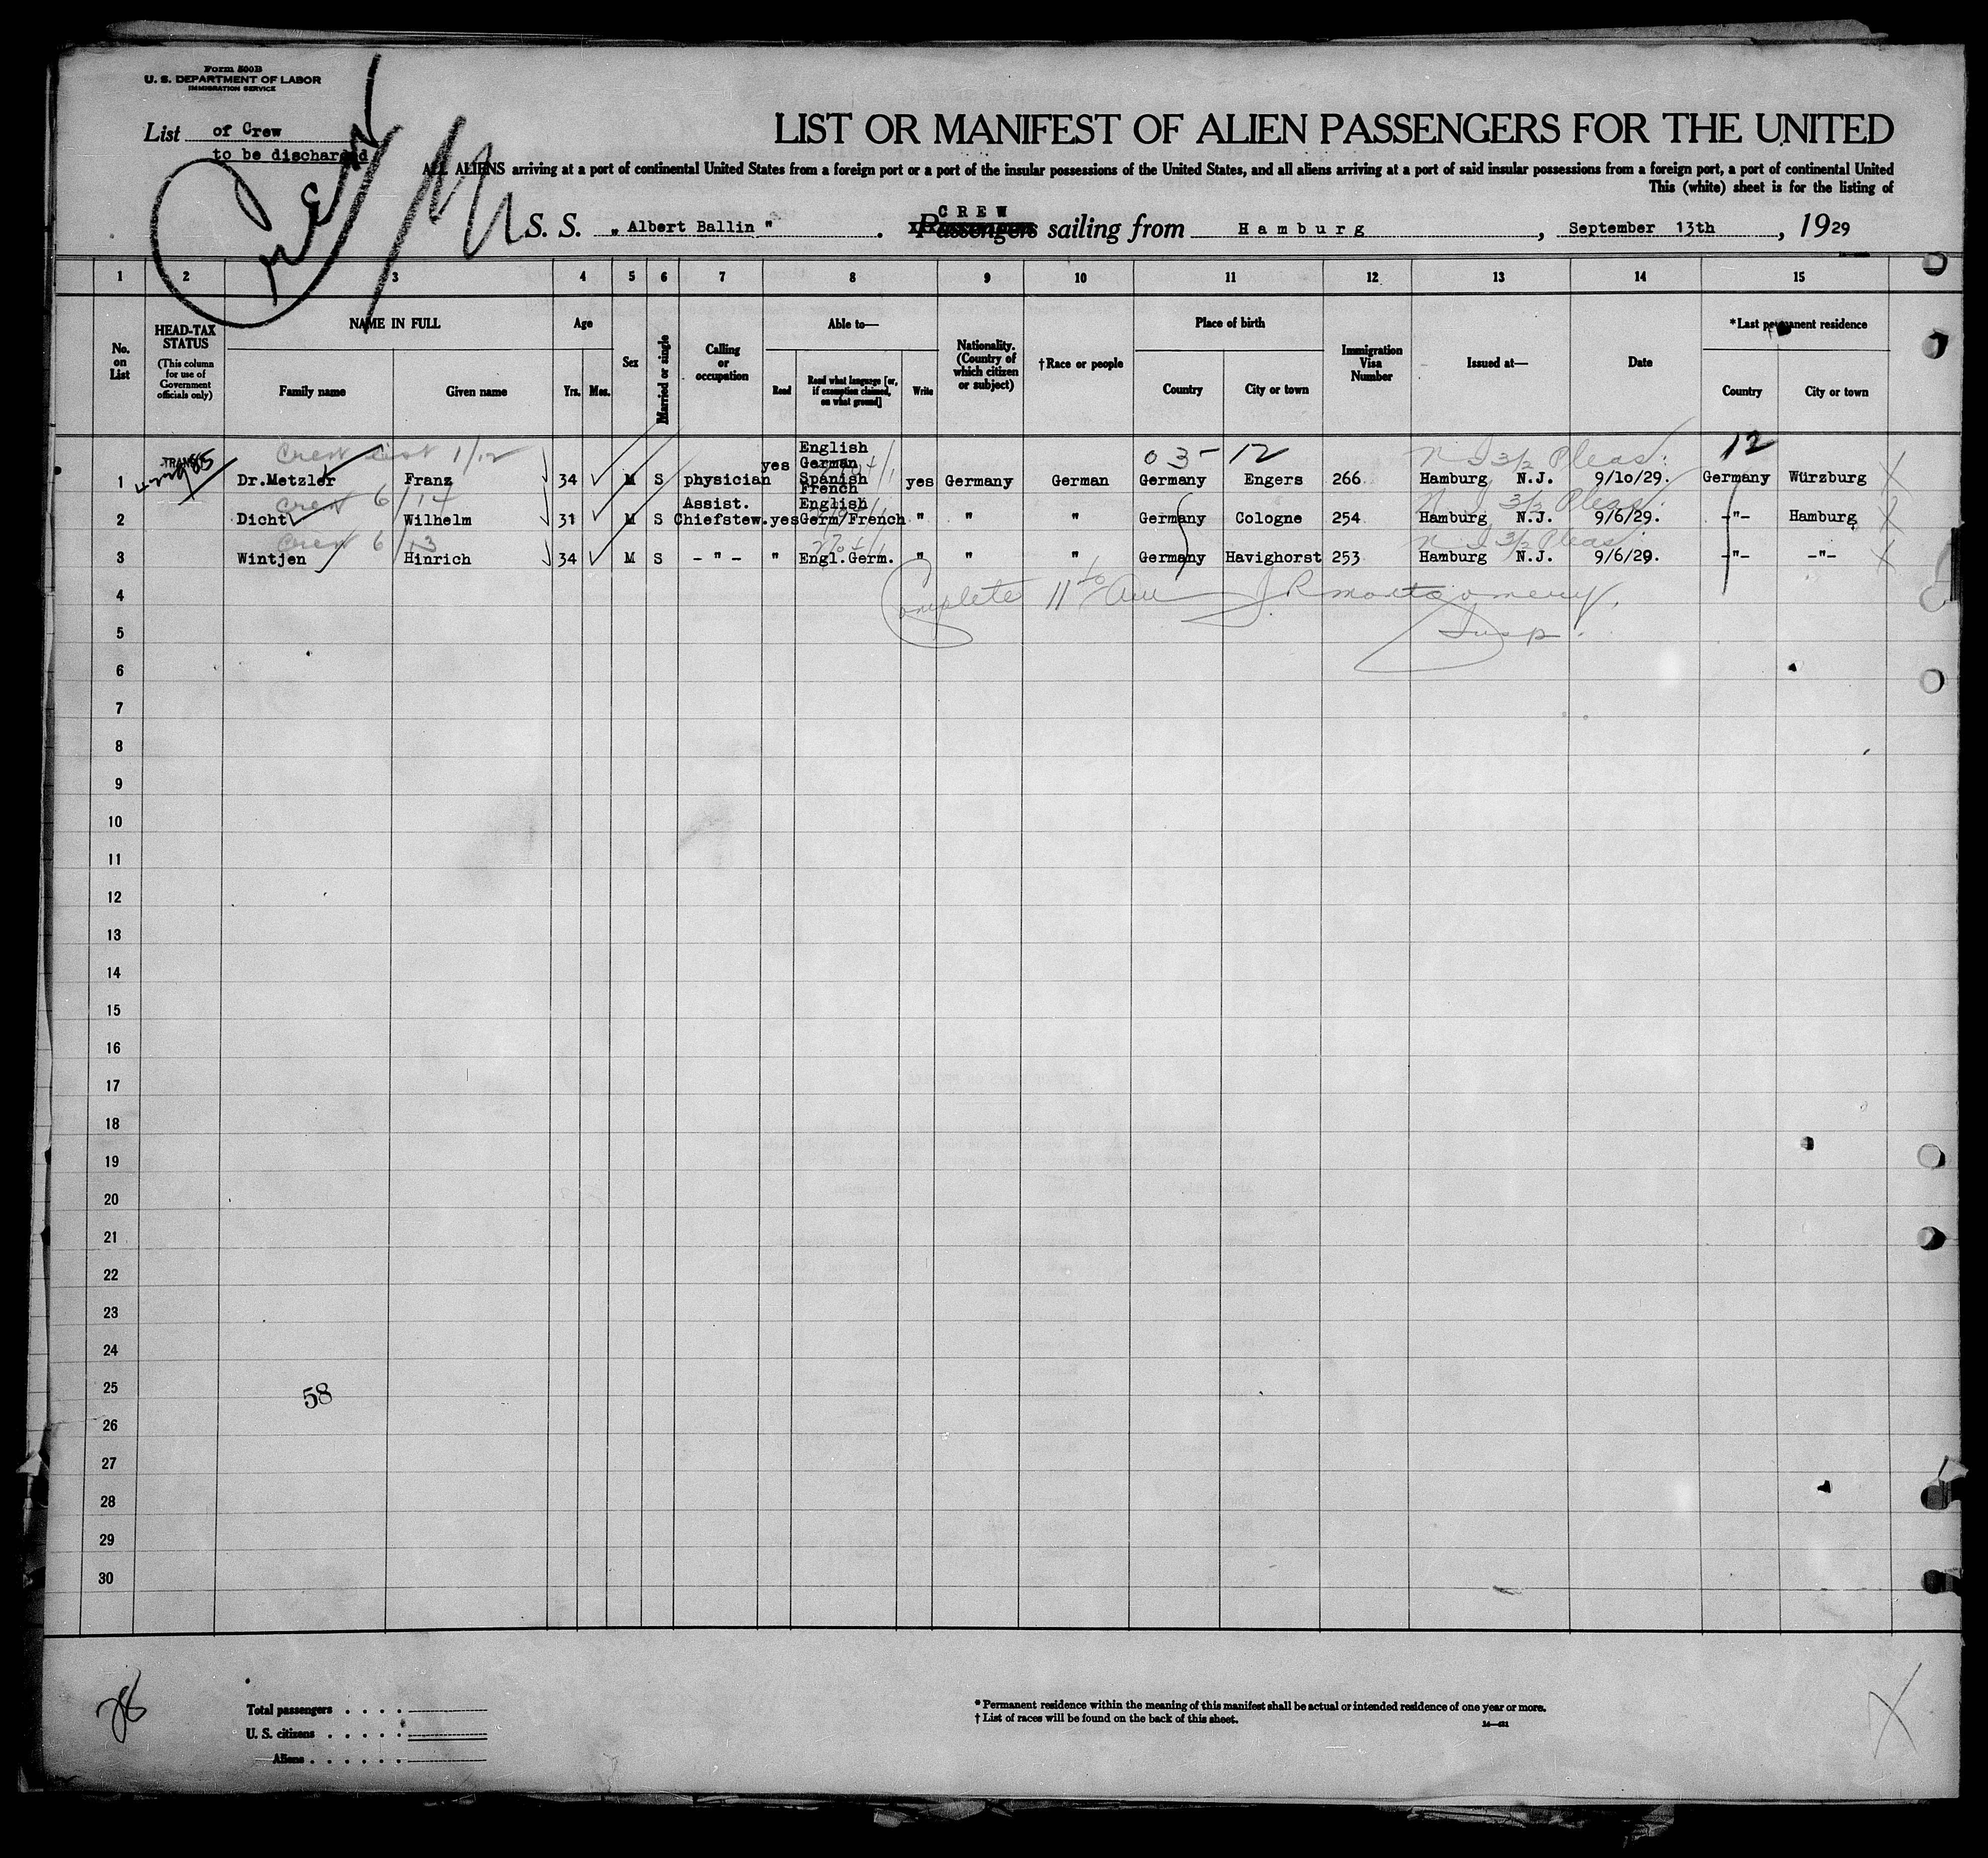 Form 500B
U. S. DEPARTMENT OF LABOR
IMMIGRATION SERVICE
List of Crew
to be discharged
Crew
LIST OR MANIFEST OF ALIEN PASSENGERS FOR THE UNITED
ALL ALIENS arriving at a port of continental United States from a foreign port or a port of the insular possessions of the United States, and all aliens arriving at a port of said insular possessions from a foreign port, a port of continental United
This (white) sheet is for the listing of
CREW
S. S. „ Albert Ballin " . Passengers sailing from Hamburg , September 13th , 1929
1 2 3 4 5 6 7 8 9 10 11 12 13 14 15
No. on List
HEAD-TAX STATUS
(This column for use of Government officials only)
NAME IN FULL
Family name Given name
Age
Yrs. Mos.
Sex
Married or single
Calling or occupation
Able to—
Read Read what language [or, if exemption claimed, on what ground] Write
Nationality. (Country of which citizen or subject)
†Race or people
Place of birth
Country City or town
Immigration Visa Number
Issued at—
Date
*Last permanent residence
Country City or town
Crew list 1/12
03-12
12
1 Dr.Metzler Franz 34 M S physician yes English German Spanish French yes Germany German Germany Engers 266 Hamburg N.J. 9/10/29. Germany Würzburg X
Crew 6/14
2 Dicht Wilhelm 31 M S Assist. Chiefstew. yes English Germ/French " " " Germany Cologne 254 Hamburg N.J. 9/6/29. -"- Hamburg X
Crew 6/13
3 Wintjen Hinrich 34 M S - " - " Engl.Germ. " " " Germany Havighorst 253 Hamburg N.J. 9/6/29. -"- -"- X
4 Complete J R Montgomery.
5 Insp.
6
7
8
9
10
11
12
13
14
15
16
17
18
19
20
21
22
23
24
25
58
26
27
28
29
30
Total passengers . . . .
U. S. citizens . . . . .
Aliens . . . . . .
* Permanent residence within the meaning of this manifest shall be actual or intended residence of one year or more.
† List of races will be found on the back of this sheet.
X